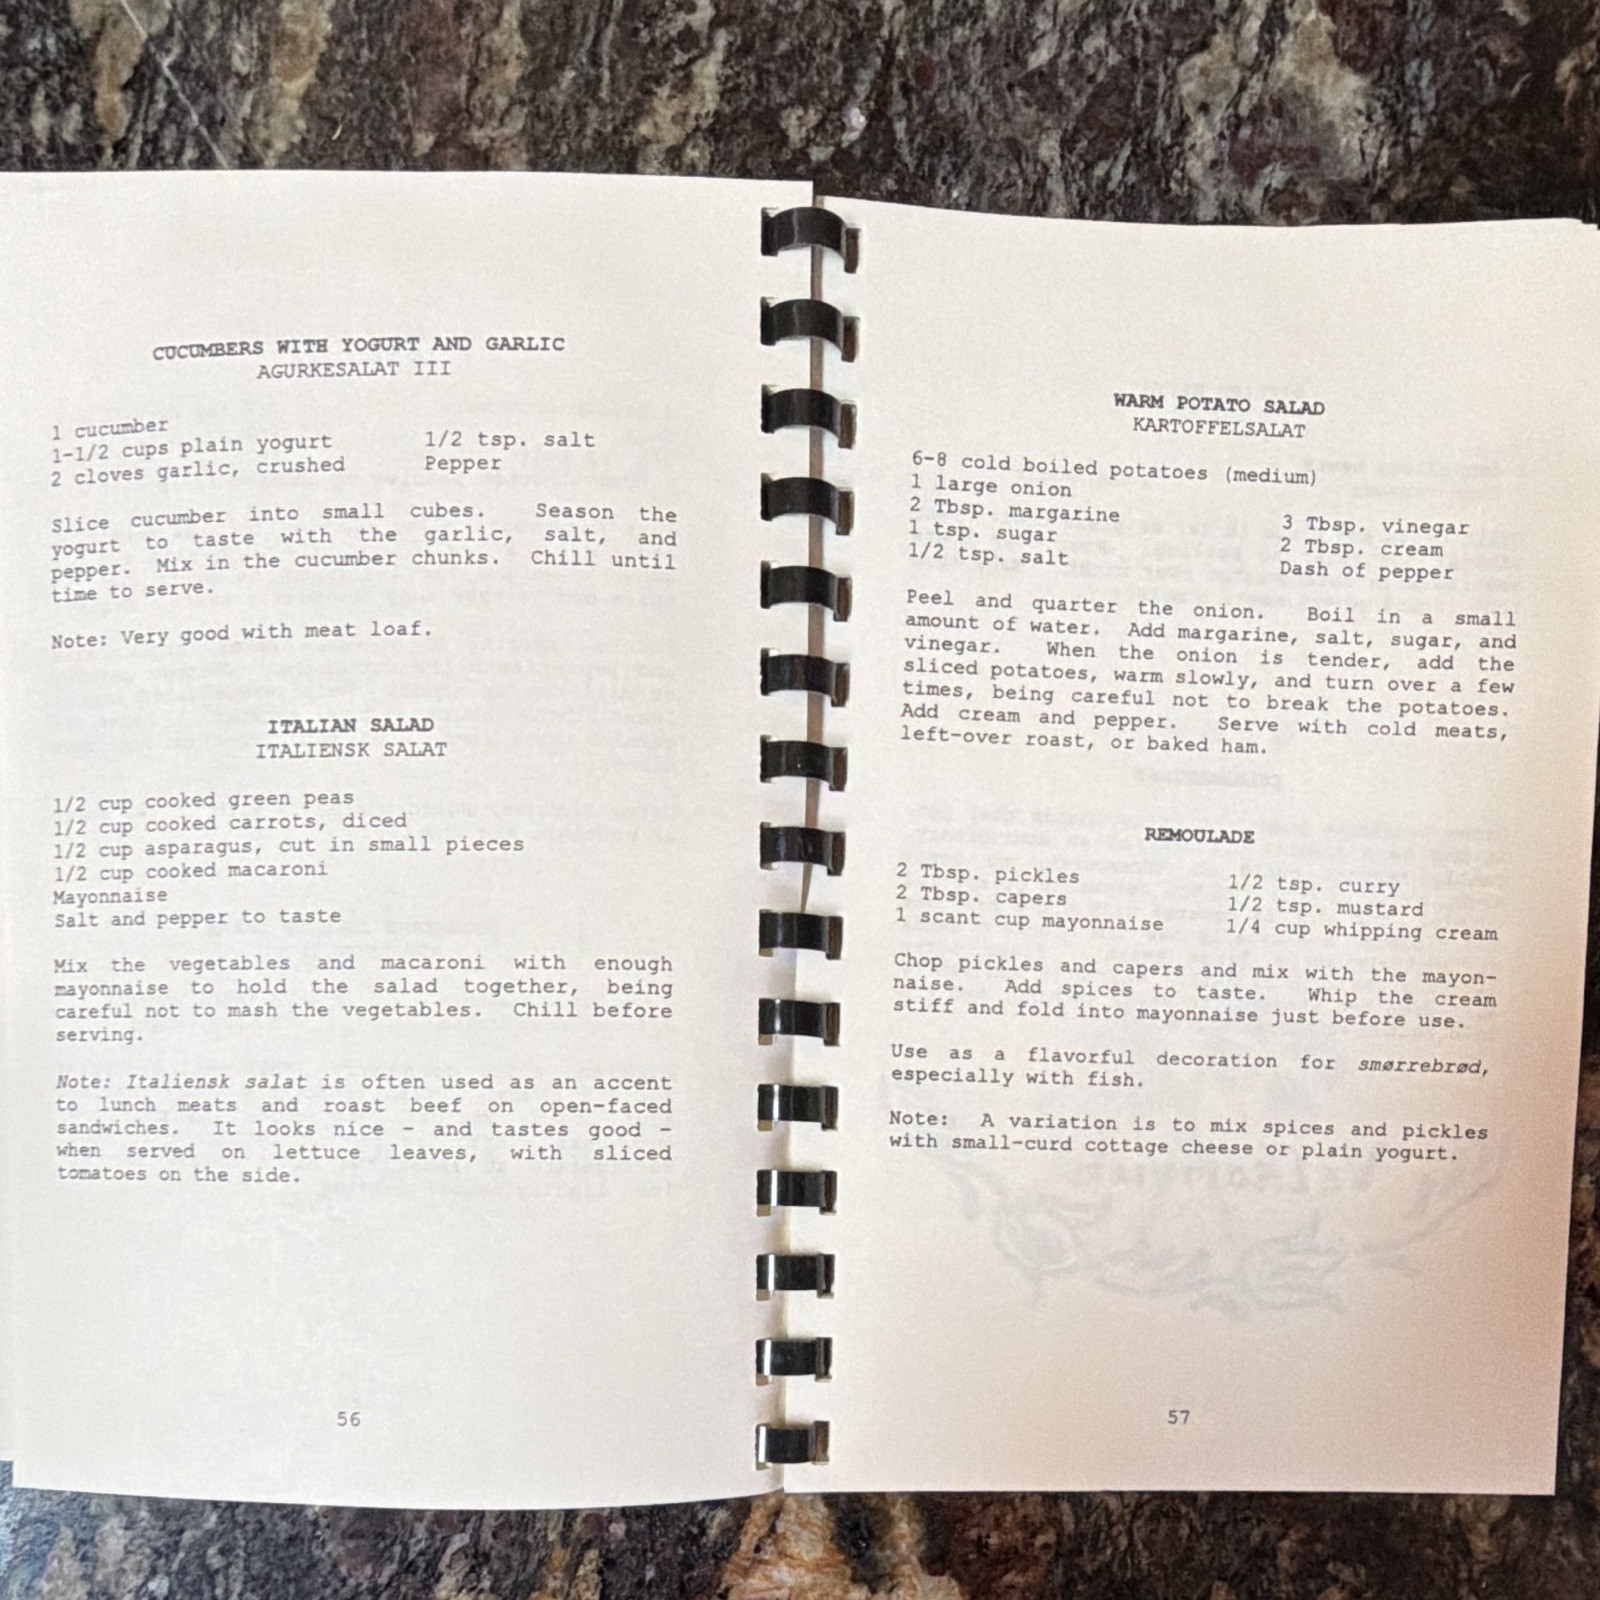 CUCUMBERS WITH YOGURT AND GARLIC
AGURKESALAT III
1 cucumber
1-1/2 cups plain yogurt 1/2 tsp. salt
2 cloves garlic, crushed Pepper
Slice cucumber into small cubes. Season the
yogurt to taste with the garlic, salt, and
pepper. Mix in the cucumber chunks. Chill until
time to serve.
Note: Very good with meat loaf.
ITALIAN SALAD
ITALIENSK SALAT
1/2 cup cooked green peas
1/2 cup cooked carrots, diced
1/2 cup asparagus, cut in small pieces
1/2 cup cooked macaroni
Mayonnaise
Salt and pepper to taste
Mix the vegetables and macaroni with enough
mayonnaise to hold the salad together, being
careful not to mash the vegetables. Chill before
serving.
Note: Italiensk salat is often used as an accent
to lunch meats and roast beef on open-faced
sandwiches. It looks nice - and tastes good -
when served on lettuce leaves, with sliced
tomatoes on the side.
56
WARM POTATO SALAD
KARTOFFELSALAT
6-8 cold boiled potatoes (medium)
1 large onion
2 Tbsp. margarine 3 Tbsp. vinegar
1 tsp. sugar 2 Tbsp. cream
1/2 tsp. salt Dash of pepper
Peel and quarter the onion. Boil in a small
amount of water. Add margarine, salt, sugar, and
vinegar. When the onion is tender, add the
sliced potatoes, warm slowly, and turn over a few
times, being careful not to break the potatoes.
Add cream and pepper. Serve with cold meats,
left-over roast, or baked ham.
REMOULADE
2 Tbsp. pickles 1/2 tsp. curry
2 Tbsp. capers 1/2 tsp. mustard
1 scant cup mayonnaise 1/4 cup whipping cream
Chop pickles and capers and mix with the mayon-
naise. Add spices to taste. Whip the cream
stiff and fold into mayonnaise just before use.
Use as a flavorful decoration for smørrebrød,
especially with fish.
Note: A variation is to mix spices and pickles
with small-curd cottage cheese or plain yogurt.
57